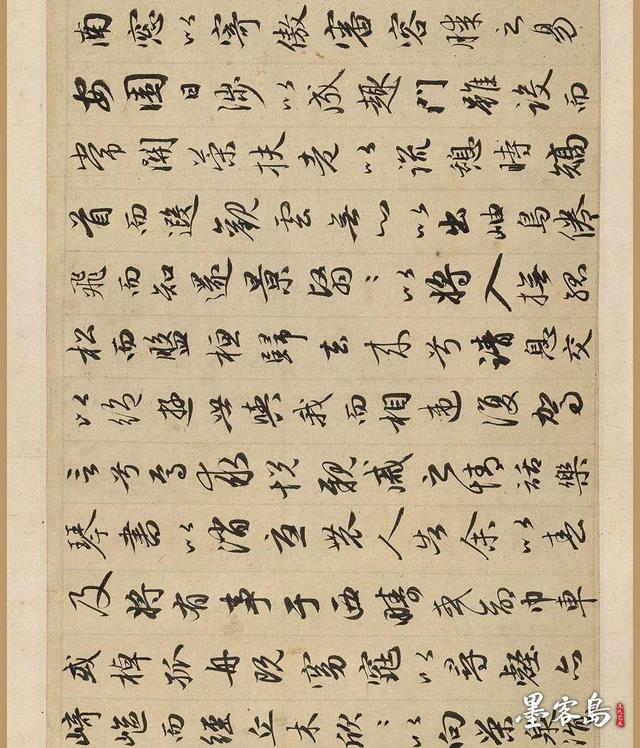 南窓以寄傲審容膝之易
安園日涉以成趣門雖設而
常開策扶老以流憩時矯
首而遐觀雲無心以出岫鳥倦
飛而知還景翳〻以將入撫孤
松而盤桓歸去來兮請息交
以絕遊世與我而相違復駕
言兮焉求悅親戚之情話樂
琴書以消憂農人告余以春
及將有事于西疇或命巾車
或棹孤舟既窈窕以尋壑亦
崎嶇而經丘木欣〻以向榮泉
墨客島